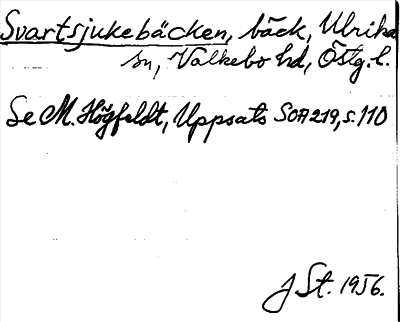 Svartsjukebäcken, bäck, Ulrika
sn, Valkebo hd, Östg. l.
Se M. Högfeldt, Uppsats SOA 219, s. 110
J St. 1956.